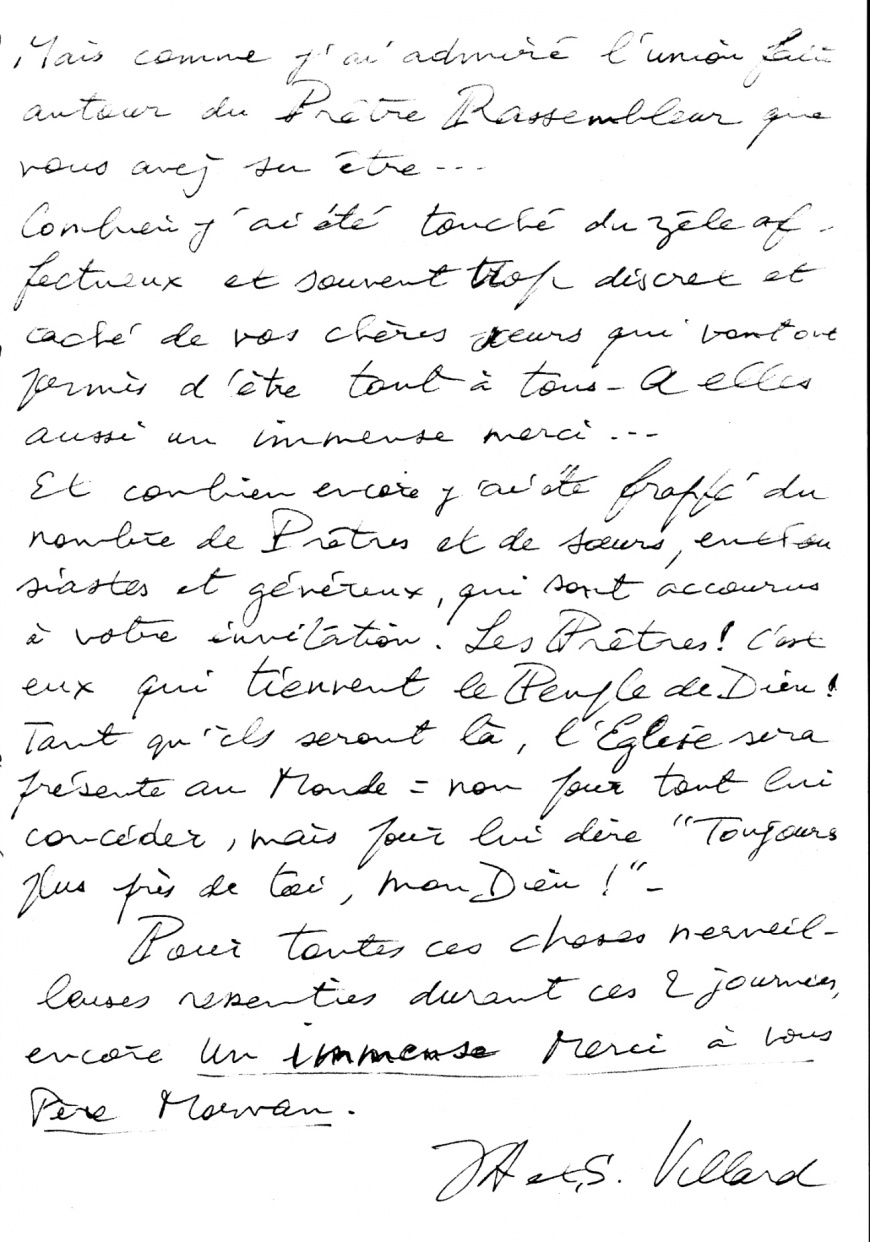 Mais comme j'ai admiré l'union faite
autour du Prêtre Rassembleur que
vous avez su être ---
Combien j'ai été touché du zèle af-
fectueux et souvent trop discret et
caché de vos chères sœurs qui vont ont
permis d'être tout à tous - A elles
aussi un immense merci ---
Et combien encore j'ai été frappé du
nombre de Prêtres et de sœurs, enthou
siastes et généreux, qui sont accourus
à votre invitation. Les Prêtres! c'est
eux qui tiennent le Peuple de Dieu!
Tant qu'ils seront là, l'Eglise sera
présente au Monde = non pour tout lui
concéder, mais pour lui dire "Toujours
plus près de toi, mon Dieu !" -
Pour toutes ces choses merveil-
leuses ressenties durant ces 2 journées,
encore un immense Merci à vous
Père Morvan.
et S. Villard